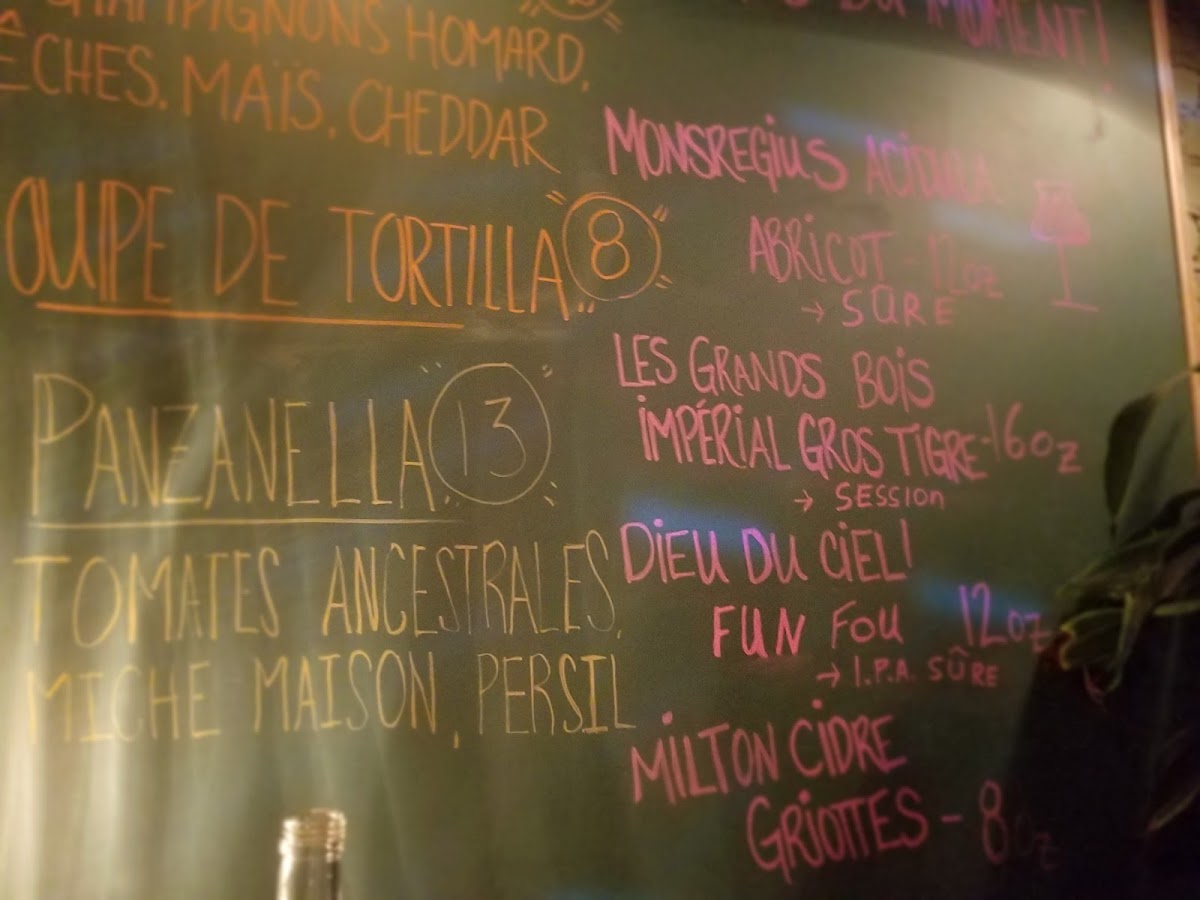 CHAMPIGNONS HOMARD,
ÊCHES, MAÏS, CHEDDAR
OUPE DE TORTILLA 8
PANZANELLA 13
TOMATES ANCESTRALES,
MICHE MAISON, PERSIL
DU MOMENT!
MONSREGIUS ACIDULA
ABRICOT - 12oz
→ SÛRE
LES GRANDS BOIS
IMPÉRIAL GROS TIGRE - 16oz
→ SESSION
DIEU DU CIEL!
FUN FOU 12oz
→ I.P.A. SÛRE
MILTON CIDRE
GRIOTTES - 8oz